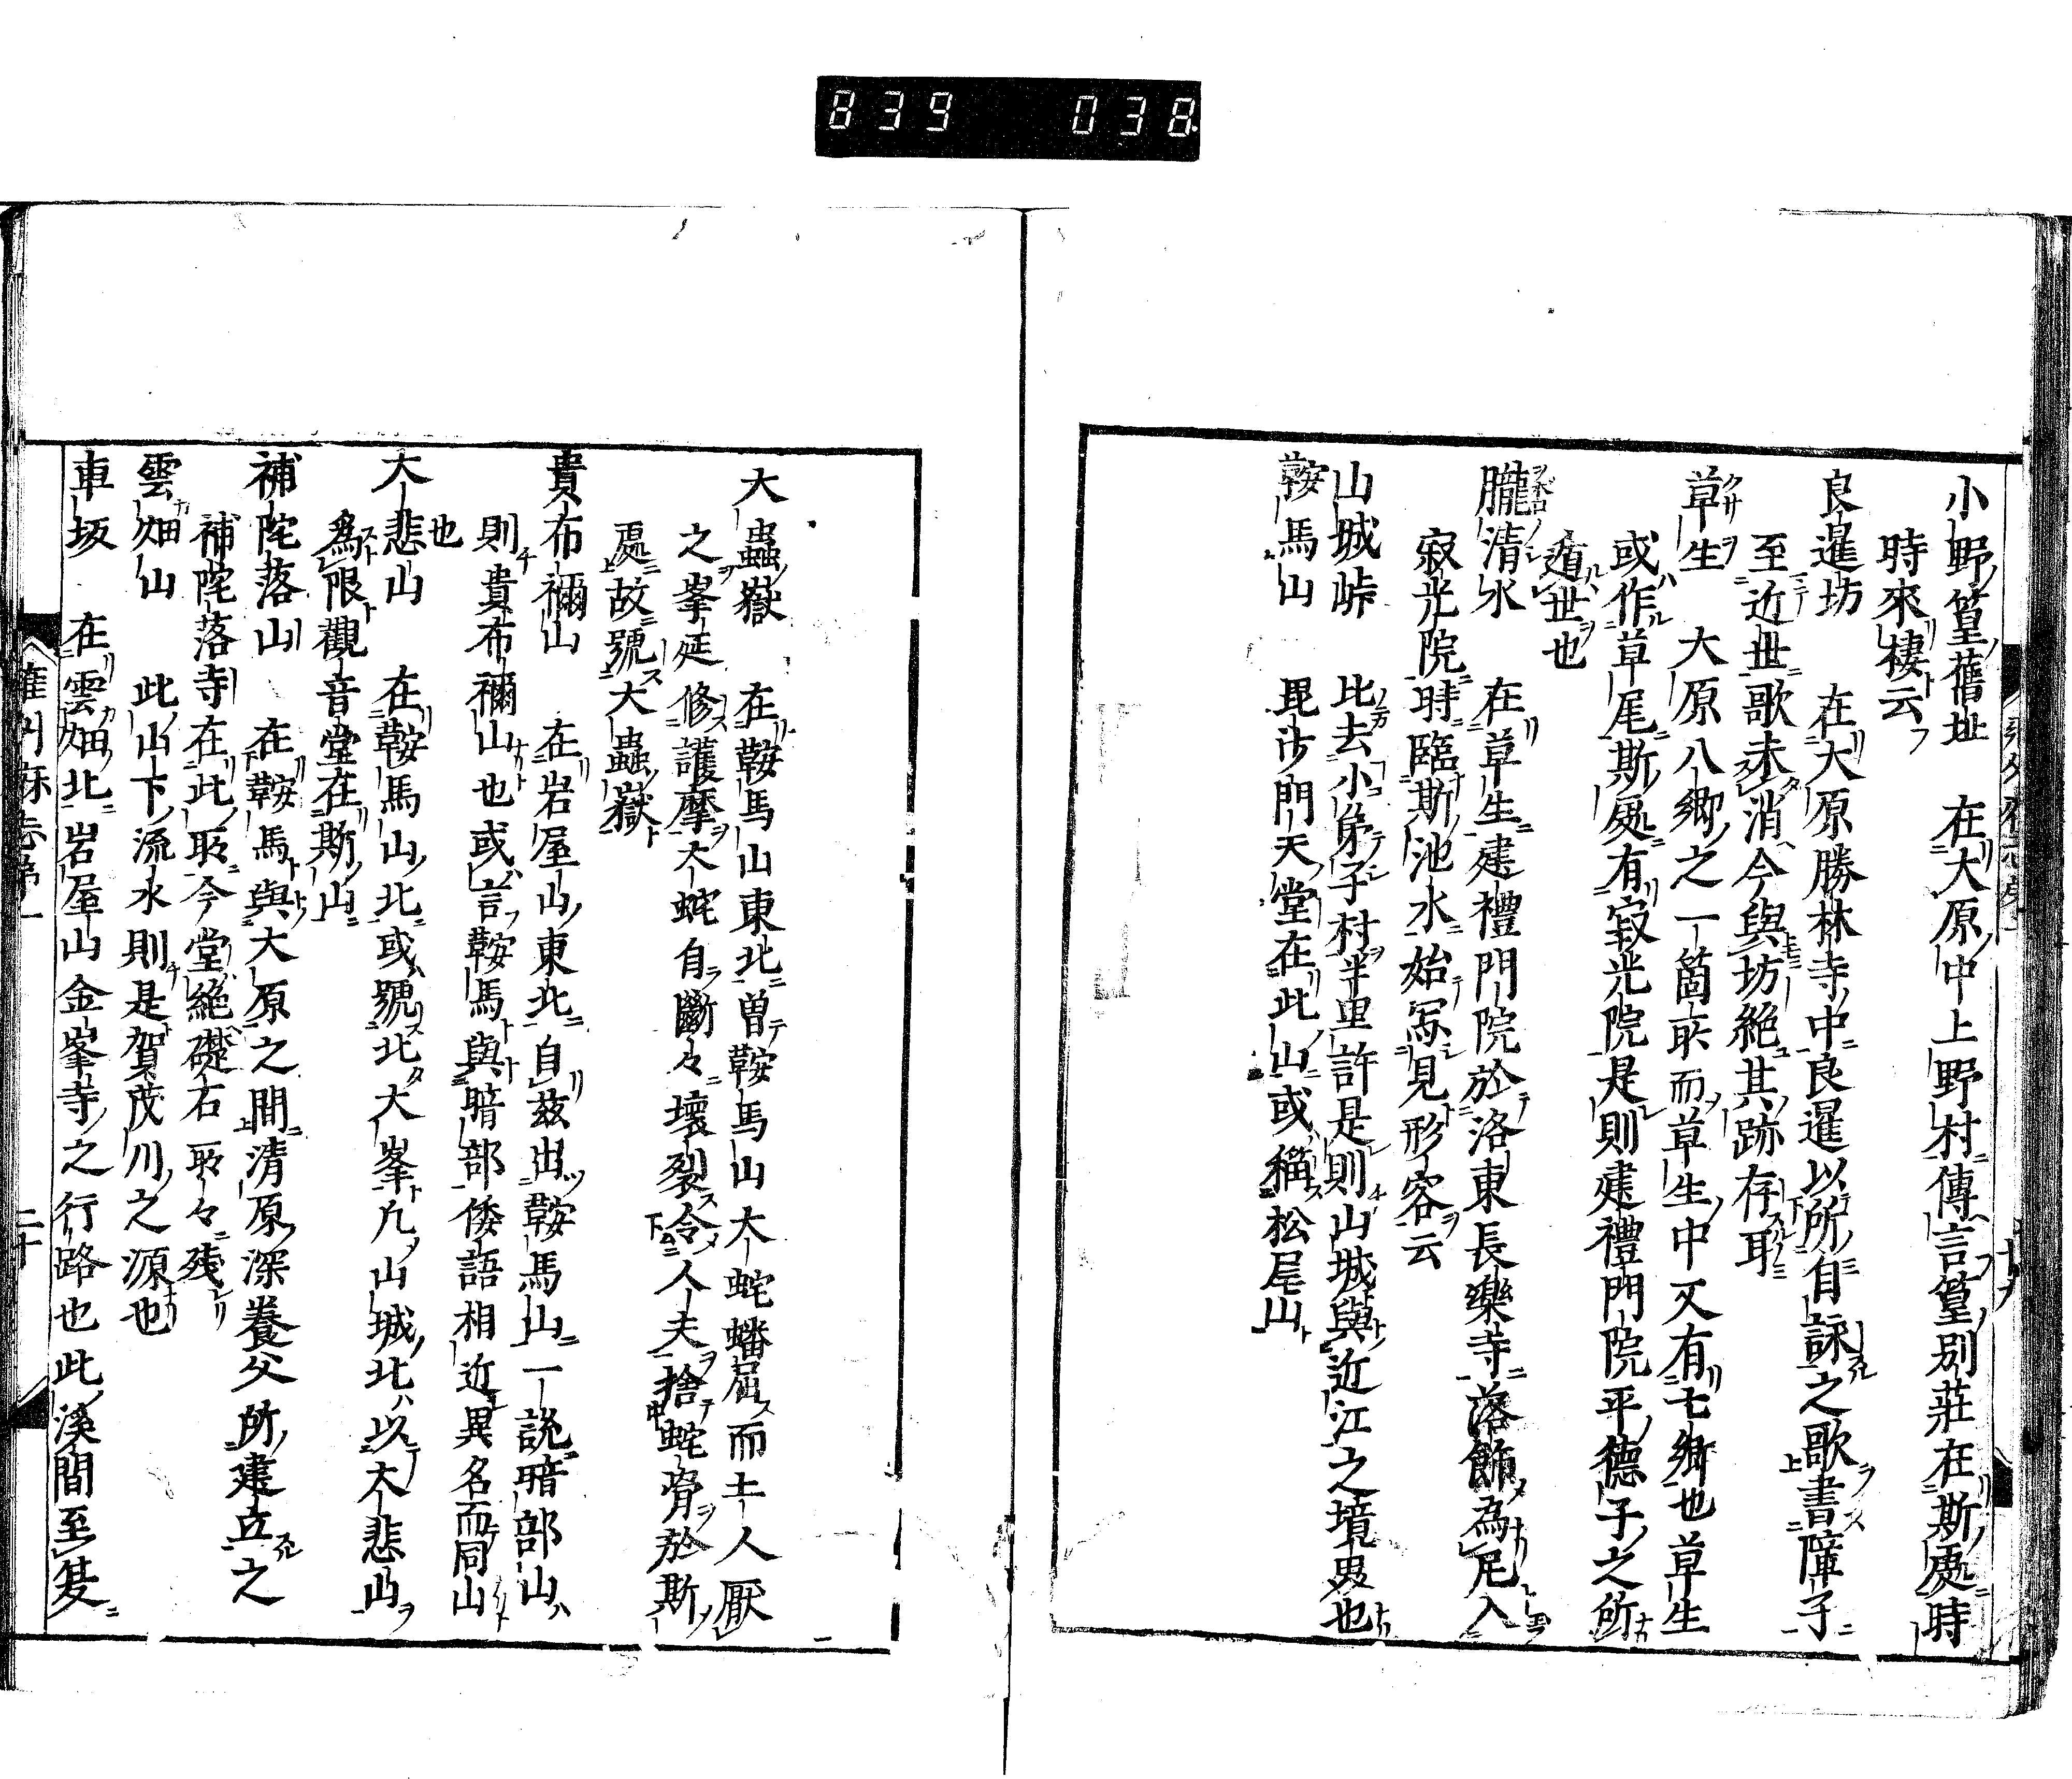 839 038
小野篁舊址 在大原中上野村傳言篁別莊在斯處時
時來棲云
良暹坊 在大原勝林寺中良暹以所自詠之歌書障子
至近世歌未消今與坊絶其跡存耳
草生 大原八郷之一箇所而草生中又有七郷也草生
或作草尾斯處有寂光院是則建禮門院平德子之所
遁世也
朧清水 在草生建禮門院於洛東長樂寺落飾為尼入
寂光院時臨斯池水始寫見形容云
山城峠 比去小弟子村半里許是則山城與近江之境界也
鞍馬山 毘沙門天堂在此山或稱松尾山
大蟲嶽 在鞍馬山東北曽鞍馬山大蛇蟠屈而土人厭
之峯延修護摩大蛇自斷々壞裂令人夫捨蛇骨於斯
處故號大蟲嶽
貴布禰山 在岩屋山東北自茲出鞍馬山一説暗部山
則貴布禰山也或言鞍馬與暗部倭語相近異名而同山
也
大悲山 在鞍馬山北或號北大峯凡山城北以大悲山
爲限觀音堂在斯山
補陀落山 在鞍馬與大原之間清原深養父所建立之
補陀落寺在此所今堂絶礎石所々残
雲畑山 此山下流水則是賀茂川之源也
車坂 在雲畑北岩屋山金峯寺之行路也此溪間至夏
雍州府志第一 二十